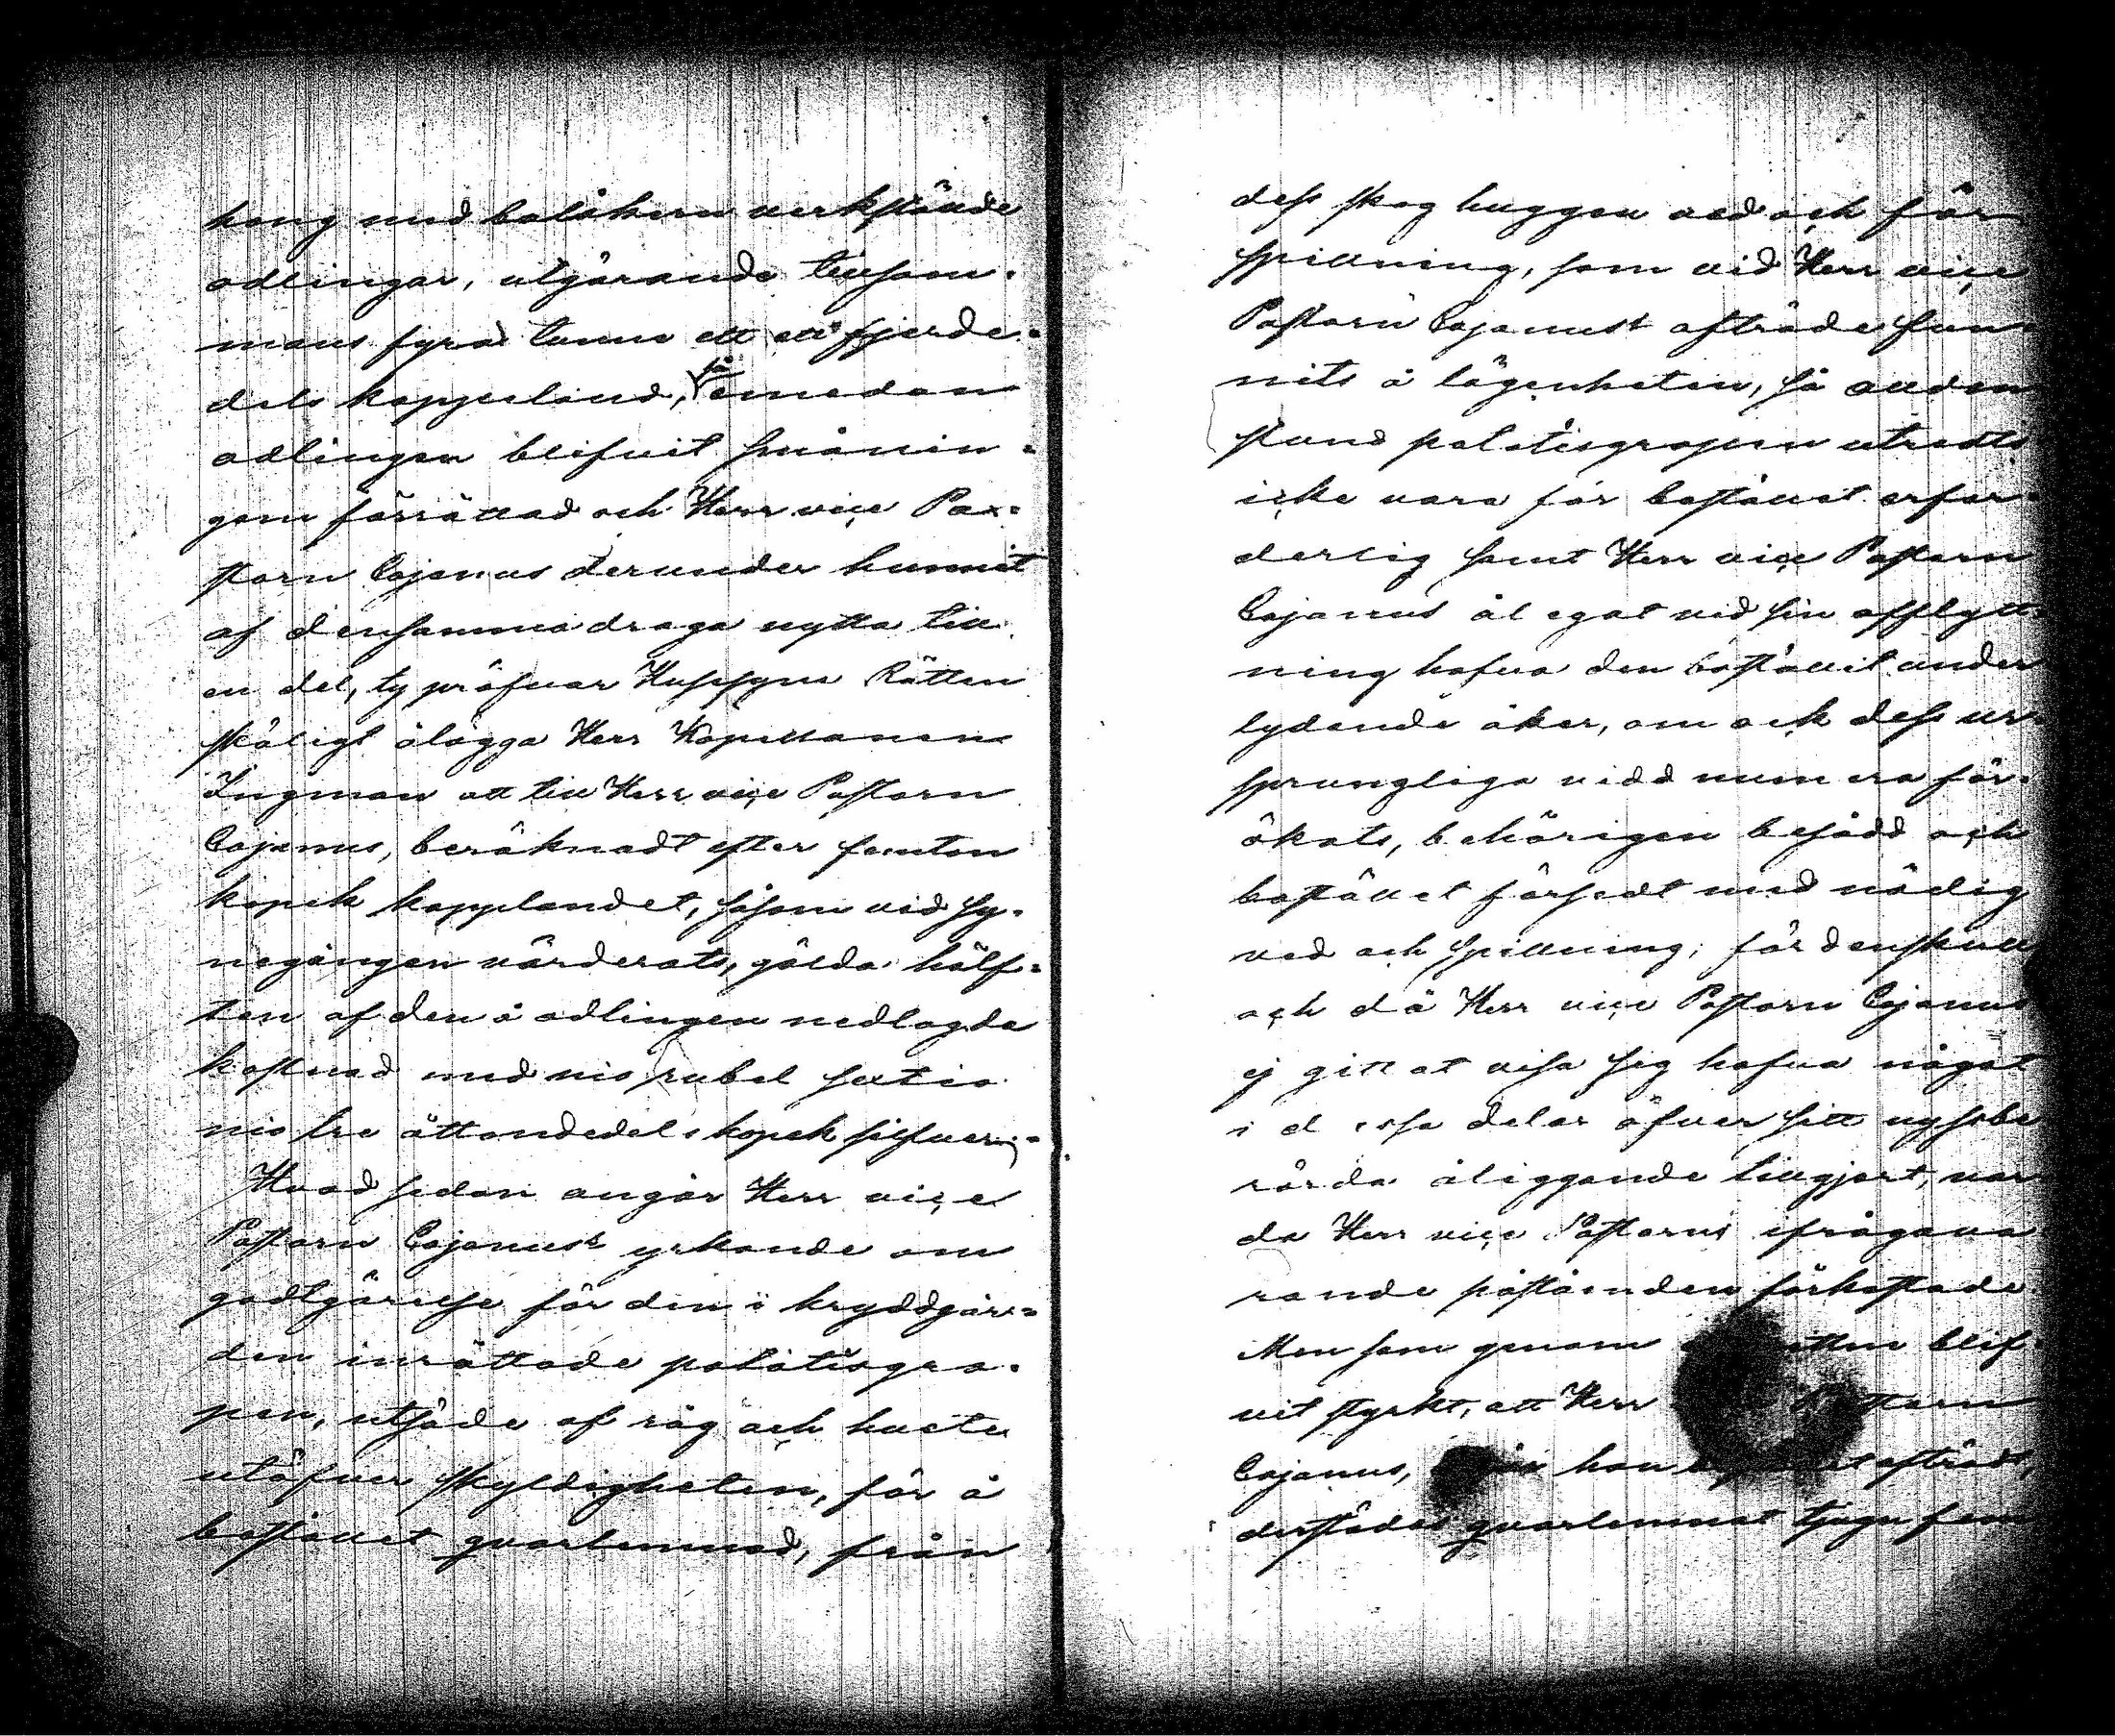 hang med bolåkern verkstälde
odlingar, utgörande tillsam-
mans fyra tunn ett ett fjerde-
dels kappeland, så emedan
odlingen blifvit smånin-
gom förrättad och Herr vice Pa-
storn Cajanus derunder hunnit
af densamma draga nytta till
en del, ty pröfvar HusSyns Rätten
skäligt ålägga Herr Kapellanen
Ingman att till Herr vice Pastorn
Cajanus, beräknadt efter femton
kopek kapplandet, såsom vid sy-
negången värderats, gälda hälf-
ten af den å odlingen nedlagda
kostnad med nio rubel sextio
nio tre åttondedels kopek silfver;-
Hvad sedan angår Herr vice
Pastorn Cajanus's yrkande om
godtgörelse för den i kryddgår-
den inrättade potatisgro-
pen, utsäde af råg och hvete
utöfver skyldigheten, för å
bostället qvarlemnad, från
dess skog huggen ved och för
spillning, som vid Herr vice
Pastorn Cajanus's afträde fun-
nits å lägenheten, så alldenn
stund potatisgropen utredts
icke vara för bostället erfor-
derlig samt Herr vice Pastorn
Cajanus ålegat vid sin afflytt-
ning hafva den bostället under
lydande åker, om ock dess ur-
sprungliga vidd numera för-
ökats, behörigen besådd och
bostället försedt med nödig
ved och spillning; för denskull
och då Herr vice Pastorn Cajanus
ej gittat visa sig hafva något
i dessa delar öfver sitt nyssbe
rörda åliggande tillgjort, var
da Herr vice Pastorns ifrågava
rande påståenden förkastade.
Men som genom blif-
vit styrkt, att Herr Pastorn
Cajanus, han afträdt,
derstädes qvarlemnat tjugu fem